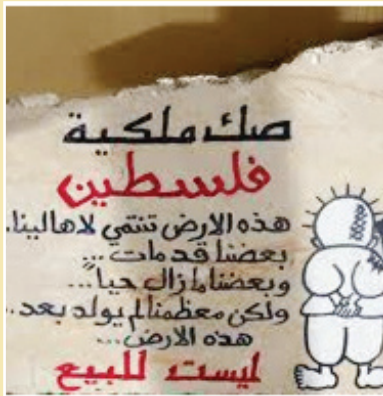 صك ملكية
فلسطين
هذه الارض تنتمي لاهالينا.
بعضنا قد مات...
وبعضنا مازال حياً...
ولكن معظمنا لم يولد بعد..
هذه الارض...
ليست للبيع